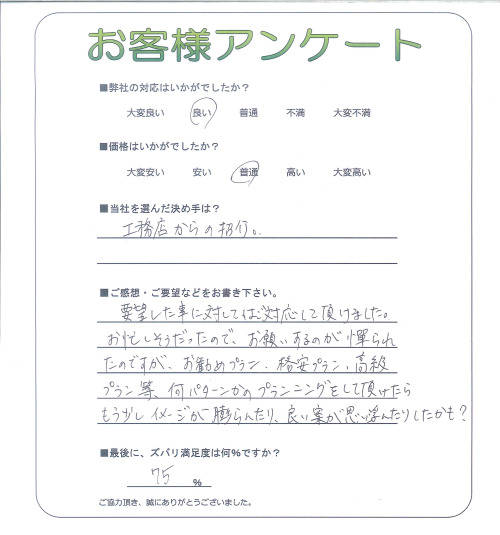 お客様アンケート
■弊社の対応はいかがでしたか？
大変良い 良い 普通 不満 大変不満
■価格はいかがでしたか？
大変安い 安い 普通 高い 大変高い
■当社を選んだ決め手は？
工務店からの紹介。
■ご感想・ご要望などをお書き下さい。
要望した事に対してはご対応して頂けました。
お忙しそうだったので、お願いするのが憚られ
たのですが、お勧めプラン、格安プラン、高級
プラン等、何パターンかのプランニングをして頂けたら
もう少しイメージが膨らんだり、良い案が思い浮んだりしたかも？
■最後に、ズバリ満足度は何%ですか？
75 %
ご協力頂き、誠にありがとうございました。